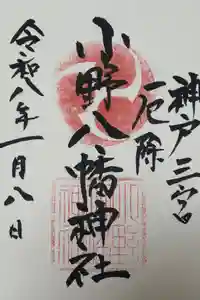 神戸三宮
厄除
小野八幡神社
令和八年一月八日